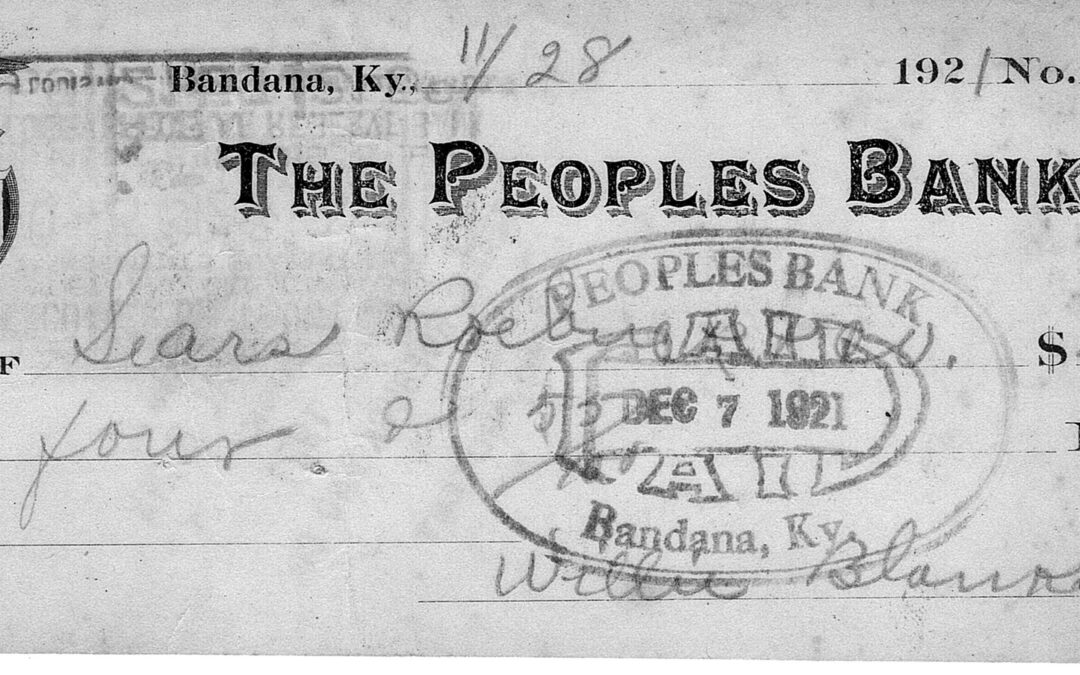 Bandana, Ky., 11/28 1921 No.
THE PEOPLES BANK
F Sears Roebuck & Co. $
four & 55
PEOPLES BANK
PAID
DEC 7 1921
PAID
Bandana, Ky.
Willie Blanks